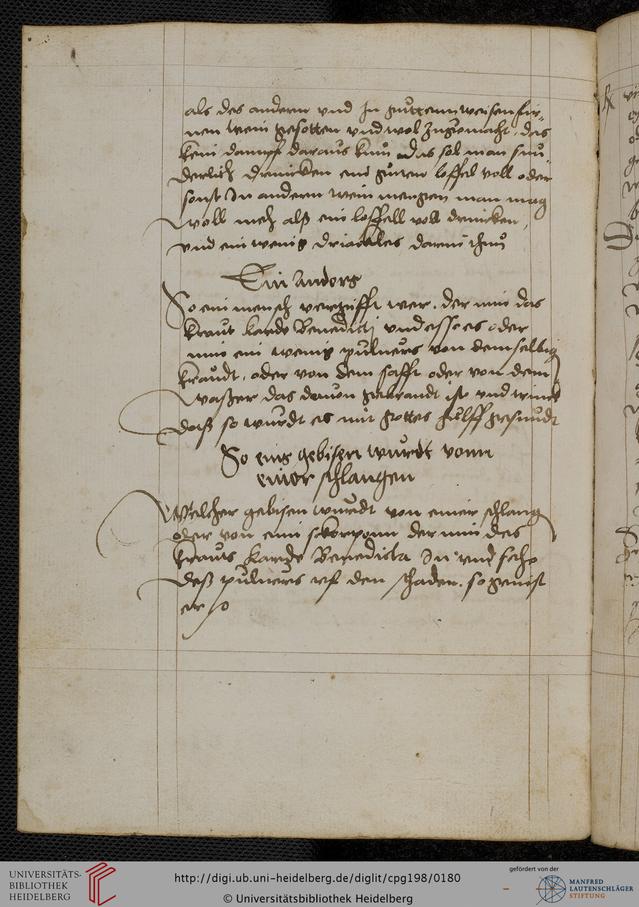 als des andern vnd In guttem weisen fir-
nen wein gesotten vnd wol zugemacht, das
kein dampf daraus kum das sol man sun
derlich drincken ein guten loffel voll oder
sonst In andern wein mengen man mag
woll meh alß ein loffell voll drincken,
vnd ein wenig driackes darein thun
Ein Anders
So ein mensch vergifft wer, der nim das
kraut kardo Benedicti vnd esse es oder
nim ein wenig puluers von demselbig
kraudt, oder von dem safft oder von dem
waßer das dauon gebrandt ist vnd trinck
daß so wurdt es mit gottes hülff gesundt
So eins gebisen wurdt vonn
einer schlangen
Welcher gebisen wurdt von einer schlang
oder von eim skorpion der nim des
krauts kardo Benedickta In vnd
deß puluers vf den schaden, so genist
er
UNIVERSITÄTS-
BIBLIOTHEK
HEIDELBERG
http://digi.ub.uni-heidelberg.de/diglit/cpg198/0180
© Universitätsbibliothek Heidelberg
gefördert von der
MANFRED
LAUTENSCHLÄGER
STIFTUNG